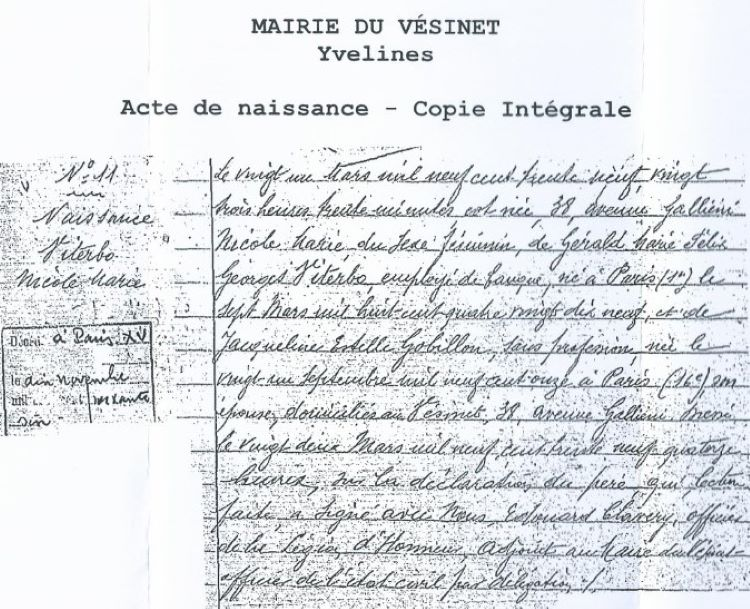 MAIRIE DU VÉSINET
Yvelines
Acte de naissance - Copie Intégrale
N° 11
Naissance
Viterbo
Nicole Marie
Décédé à Paris XV
le dix novembre
mil soixante
six
Le vingt un Mars mil neuf cent trente neuf vingt
trois heures trente minutes est née, 38 avenue Galliéni
Nicole Marie, du sexe féminin, de Gérald Marie Félix
Georges Viterbo employé de banque, né à Paris (1er) le
sept Mars mil huit cent quatre vingt dix neuf, et de
Jacqueline Estelle Gobillon, sans profession, née le
vingt un septembre mil neuf cent onze à Paris (16e) son
épouse, domiciliés au Vésinet, 38, avenue Galliéni. Dressé
le vingt deux Mars mil neuf cent trente neuf quatorze
heures, sur la déclaration du père qui, lecture
faite, a signé avec Nous, Edouard Clavery, officier
de la Légion d'Honneur, adjoint au Maire du Vésinet
officier de l'état civil par délégation ./.